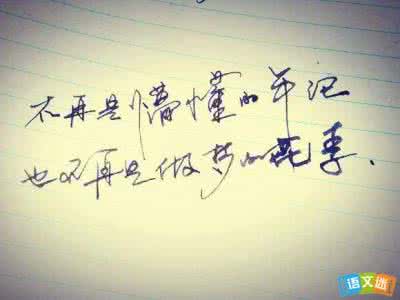 不再是懵懂的年记
也不再是做梦的花季.
语文迷